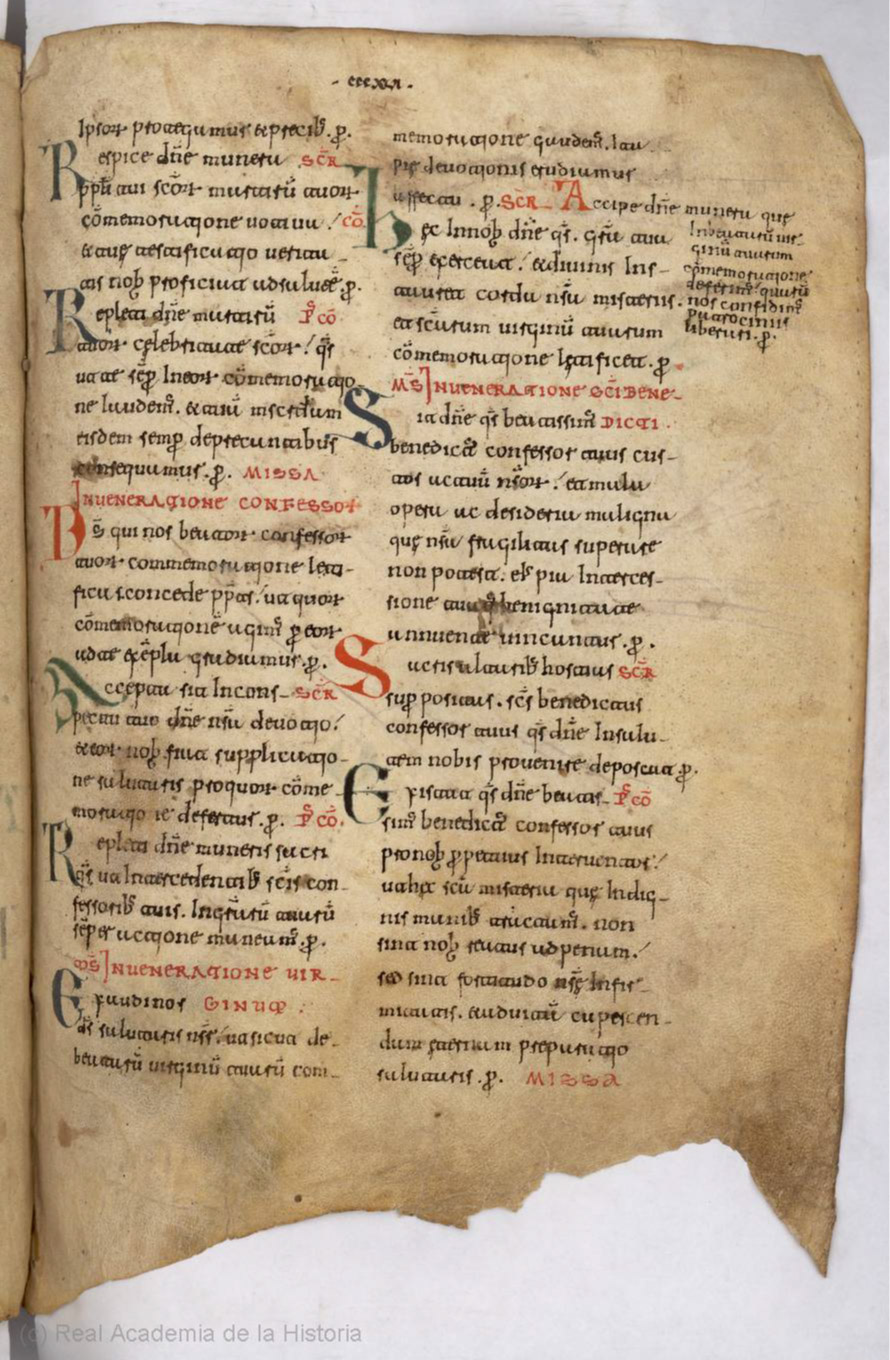 · cccxv ·
Ipsorꝝ protegimur & precib̄. ꝓ.
Respice dn̄e munera SC̄R
ppli tui sc̄orꝝ martirū tuorꝝ
cōmemoratione uotiua / CŌ.
& tuę testificatio uerita
tis nob̄ proficiat ad salutē. ꝓ.
Repleti dn̄e martirū P̄ CŌ
tuorꝝ celebritate sc̄orꝝ / q̄s
ut a te sēꝑ In eorꝝ cōmemoratio
ne laudem̄. & tuū
eisdem semꝑ deprecantibus
consequamur. ꝓ. MISSA
IN UENERATIONE CONFESSORꝝ
D̄s qui nos beatorꝝ confessorꝝ
tuorꝝ commemoratione leti-
ficas concede ꝓpt̄. / ut quorꝝ
cōmemorationē agim̄ ꝑ eorꝝ
uitae exēpla gradiamur. ꝓ.
Accepta sit In cons- SC̄R
pectu tuo dn̄e nr̄a deuotio /
& eorꝝ nob̄ fiat supplicatio-
ne salutaris pro quorꝝ cōme-
moratione defertur. ꝓ. P̄ CŌ.
Repleti dn̄e muneris sacri
q̄s ut Intercedentib̄ sc̄is con-
fessorib̄ tuis. In gr̄arū tuarū
sēper actione maneam̄. ꝓ.
M̄S IN UENERATIONE VIR-
Exaudi nos GINUM :
d̄s salutaris nr̄. / ut sicut de
beatarū uirginū tuarū com-
memoratione gaudem̄. Ita
pie deuotionis erudiamur
affectu. ꝓ. SC̄R Accipe dn̄e munera que
In beatarū uir-
ginū tuarum
cōmemoratione
deferim̄ quarū
nos confidim̄
patrociniis
liberari. ꝓ.
Hęc In nob̄ dn̄e q̄s. gr̄a tua
sēꝑ exerceat / & diuinis Ins-
tauret corda nr̄a misteriis.
et sc̄arum uirginū tuarum
cōmemoratione lętificet. ꝓ
M̄S IN UENERATIONE SC̄I BENE-
Sit dn̄e q̄s beatissim̄ DICTI .
benedict̄ confessor tuus cus-
tos uitarū nr̄orꝝ / et mala
opera ac desideria maligna
quę nr̄a fragilitas superare
non potest. el̄s pia Interces-
sione tua benignitate
annuente uincantur. ꝓ.
Sacris altarib̄ hostias SC̄R
suꝑ positas. sc̄s benedictus
confessor tuus q̄s dn̄e In salu-
tem nobis prouenire deposcat ꝓ.
Existat q̄s dn̄e beatis- P̄ CŌ
sim̄ benedict̄ confessor tuus
pro nob̄ ꝓpetuus Interuentor /
ut hęc sc̄a misteria quę Indig-
nis manib̄ tractam̄. non
sint nob̄ reatus ad penam. /
sed sint fortitudo nr̄ę Infir-
mitatis. &
dum ęternam preparatio
salutaris. ꝓ. MISSA
(c) Real Academia de la Historia